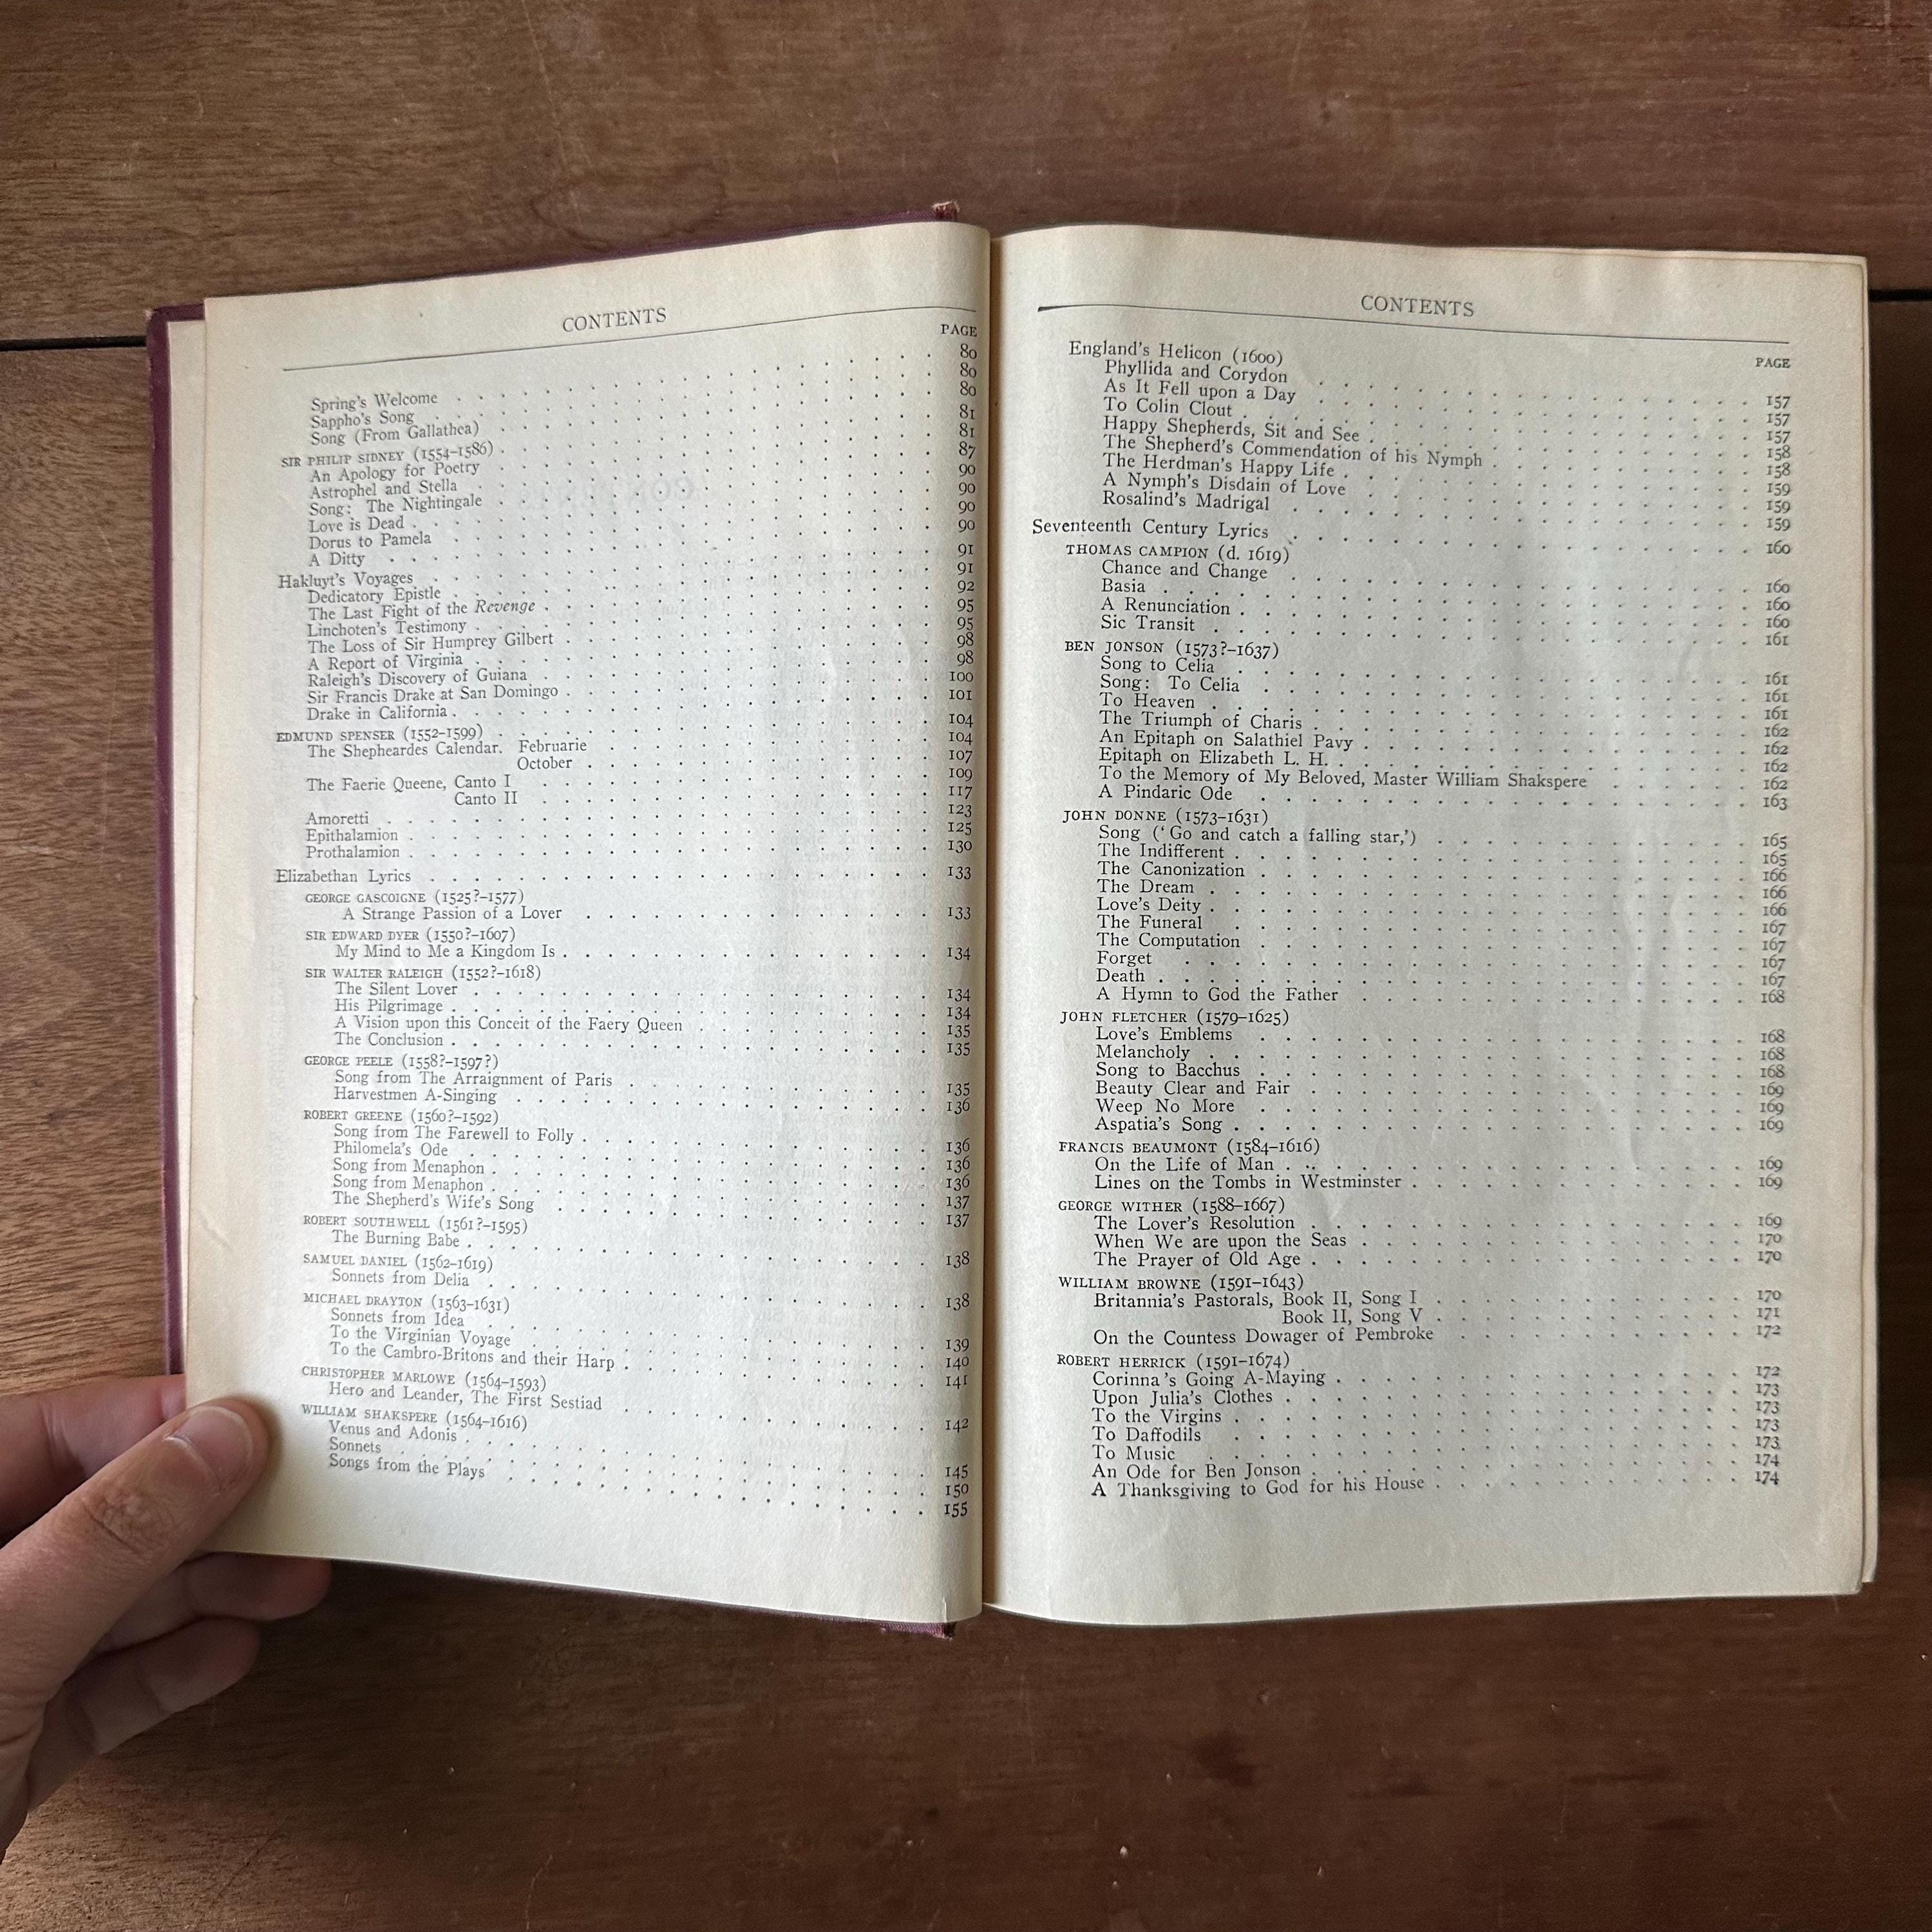 CONTENTS
PAGE
Spring's Welcome . . . 80
Sappho's Song . . . 80
Song (From Gallathea) . . . 80
SIR PHILIP SIDNEY (1554–1586) . . . 81
An Apology for Poetry . . . 81
Astrophel and Stella . . . 87
Song: The Nightingale . . . 90
Love is Dead . . . 90
Dorus to Pamela . . . 90
A Ditty . . . 90
Hakluyt's Voyages . . . 91
Dedicatory Epistle . . . 91
The Last Fight of the Revenge . . . 92
Linchoten's Testimony . . . 95
The Loss of Sir Humprey Gilbert . . . 95
A Report of Virginia . . . 98
Raleigh's Discovery of Guiana . . . 98
Sir Francis Drake at San Domingo . . . 100
Drake in California . . . 101
EDMUND SPENSER (1552–1599) . . . 104
The Shepheardes Calendar. Februarie . . . 104
October . . . 107
The Faerie Queene, Canto I . . . 109
Canto II . . . 117
Amoretti . . . 123
Epithalamion . . . 125
Prothalamion . . . 130
Elizabethan Lyrics . . . 133
GEORGE GASCOIGNE (1525?–1577)
A Strange Passion of a Lover . . . 133
SIR EDWARD DYER (1550?–1607)
My Mind to Me a Kingdom Is . . . 134
SIR WALTER RALEIGH (1552?–1618)
The Silent Lover . . . 134
His Pilgrimage . . . 134
A Vision upon this Conceit of the Faery Queen . . . 135
The Conclusion . . . 135
GEORGE PEELE (1558?–1597?)
Song from The Arraignment of Paris . . . 135
Harvestmen A-Singing . . . 136
ROBERT GREENE (1560?–1592)
Song from The Farewell to Folly . . . 136
Philomela's Ode . . . 136
Song from Menaphon . . . 136
Song from Menaphon . . . 137
The Shepherd's Wife's Song . . . 137
ROBERT SOUTHWELL (1561?–1595)
The Burning Babe . . . 138
SAMUEL DANIEL (1562–1619)
Sonnets from Delia . . . 138
MICHAEL DRAYTON (1563–1631)
Sonnets from Idea . . . 139
To the Virginian Voyage . . . 140
To the Cambro-Britons and their Harp . . . 141
CHRISTOPHER MARLOWE (1564–1593)
Hero and Leander, The First Sestiad . . . 142
WILLIAM SHAKSPERE (1564–1616)
Venus and Adonis . . . 145
Sonnets . . . 150
Songs from the Plays . . . 155
CONTENTS
PAGE
England's Helicon (1600)
Phyllida and Corydon . . . 157
As It Fell upon a Day . . . 157
To Colin Clout . . . 157
Happy Shepherds, Sit and See . . . 158
The Shepherd's Commendation of his Nymph . . . 158
The Herdman's Happy Life . . . 159
A Nymph's Disdain of Love . . . 159
Rosalind's Madrigal . . . 159
Seventeenth Century Lyrics . . . 160
THOMAS CAMPION (d. 1619)
Chance and Change . . . 160
Basia . . . 160
A Renunciation . . . 160
Sic Transit . . . 161
BEN JONSON (1573?–1637)
Song to Celia . . . 161
Song: To Celia . . . 161
To Heaven . . . 161
The Triumph of Charis . . . 162
An Epitaph on Salathiel Pavy . . . 162
Epitaph on Elizabeth L. H. . . . 162
To the Memory of My Beloved, Master William Shakspere . . . 162
A Pindaric Ode . . . 163
JOHN DONNE (1573–1631)
Song ('Go and catch a falling star,') . . . 165
The Indifferent . . . 165
The Canonization . . . 166
The Dream . . . 166
Love's Deity . . . 166
The Funeral . . . 167
The Computation . . . 167
Forget . . . 167
Death . . . 167
A Hymn to God the Father . . . 168
JOHN FLETCHER (1579–1625)
Love's Emblems . . . 168
Melancholy . . . 168
Song to Bacchus . . . 168
Beauty Clear and Fair . . . 169
Weep No More . . . 169
Aspatia's Song . . . 169
FRANCIS BEAUMONT (1584–1616)
On the Life of Man . . . 169
Lines on the Tombs in Westminster . . . 169
GEORGE WITHER (1588–1667)
The Lover's Resolution . . . 169
When We are upon the Seas . . . 170
The Prayer of Old Age . . . 170
WILLIAM BROWNE (1591–1643)
Britannia's Pastorals, Book II, Song I . . . 170
Book II, Song V . . . 171
On the Countess Dowager of Pembroke . . . 172
ROBERT HERRICK (1591–1674)
Corinna's Going A-Maying . . . 172
Upon Julia's Clothes . . . 173
To the Virgins . . . 173
To Daffodils . . . 173
To Music . . . 173
An Ode for Ben Jonson . . . 174
A Thanksgiving to God for his House . . . 174